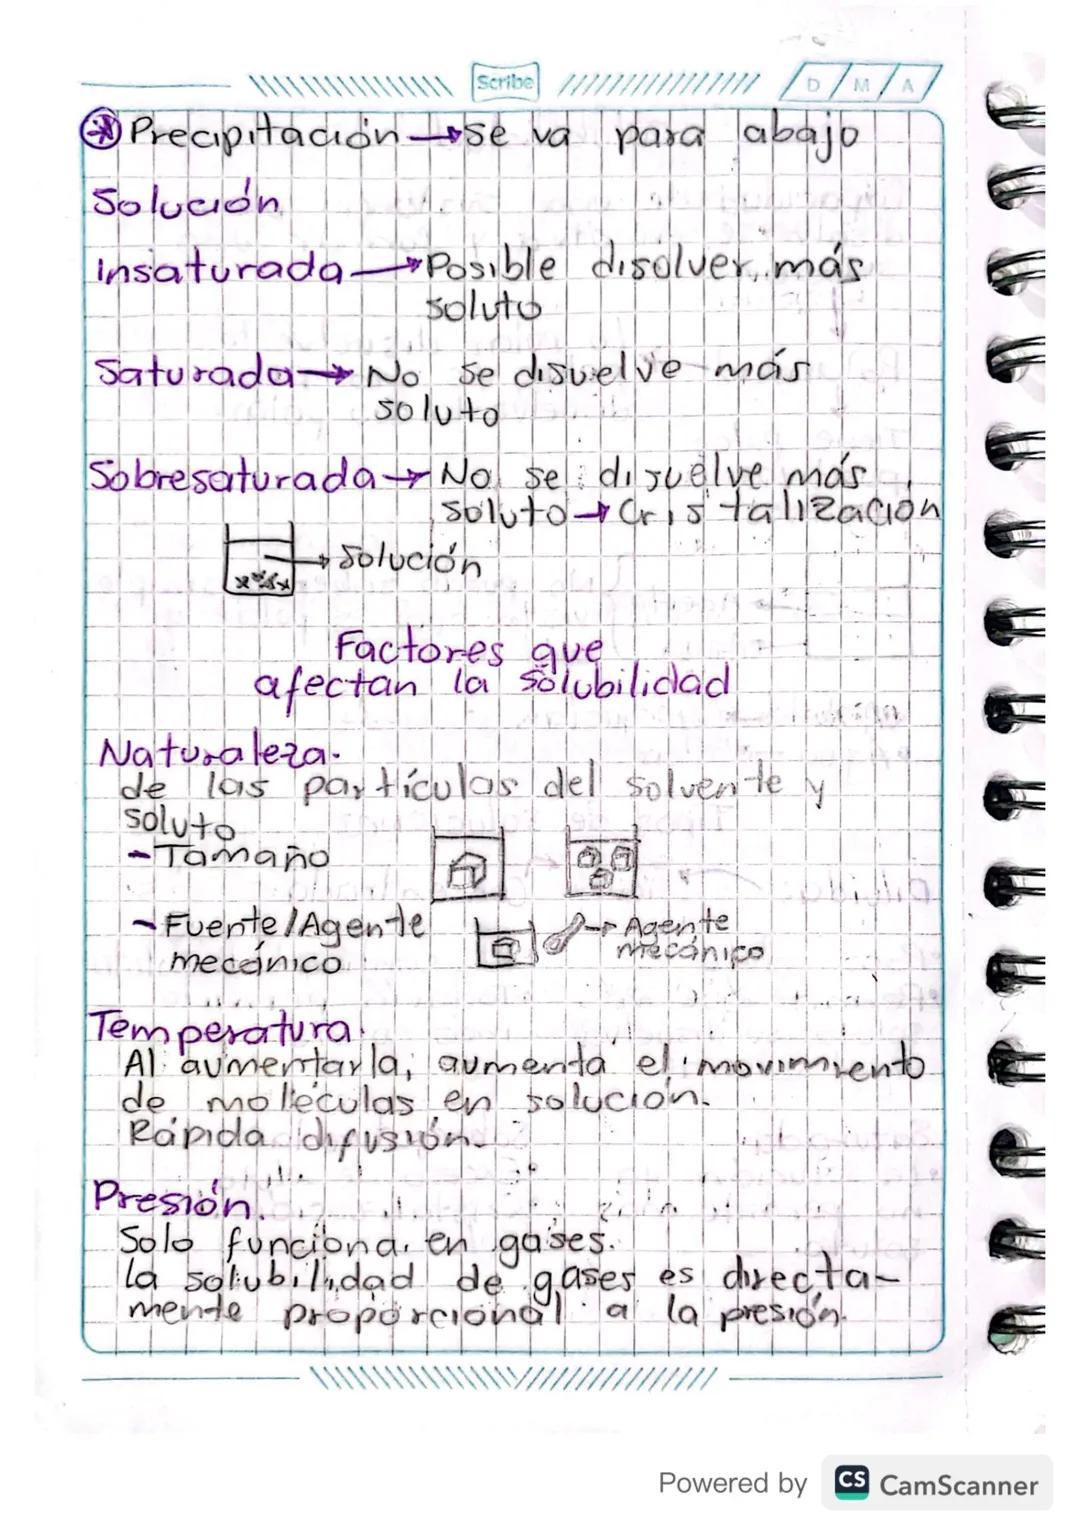 Scribe D / M / A
Precipitación → se va para abajo
Solución
insaturada → Posible disolver más
soluto
Saturada → No se disuelve más
soluto
Sobresaturada → No se disuelve más
soluto → Cristalización
→ Solución
Factores que
afectan la solubilidad
Naturaleza.
de las partículas del solvente y
soluto
- Tamaño
- Fuente/Agente
mecánico
→ Agente
mecánico
Temperatura.
Al aumentarla, aumenta el movimiento
de moleculas en solución.
Rápida difusión.
Presión.
Solo funciona en gases.
la solubilidad de gases es directa-
mente proporcional a la presión.
Powered by CS CamScanner